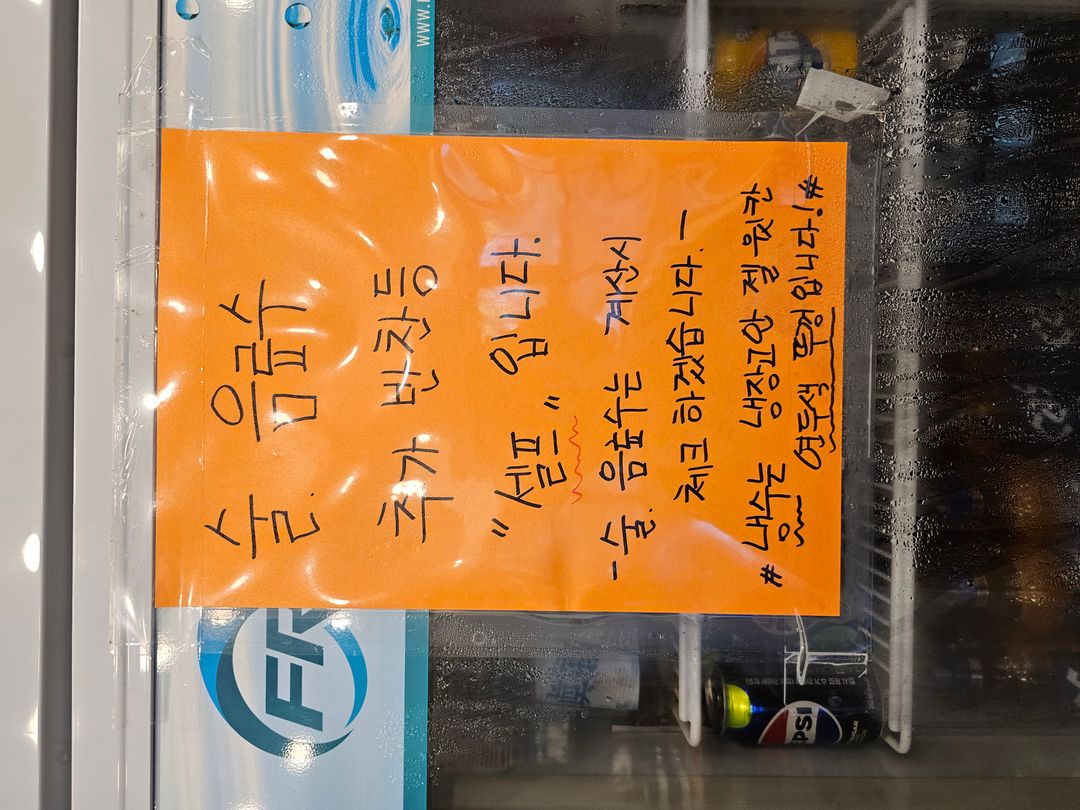 FR
술. 음료수
추가 반찬등
"셀프" 입니다.
-술. 음료수는 계산시
체크 하겠습니다.-
# 냉수는 냉장고안 젤 윗칸
연두색 뚜껑입니다!#
WWW.
PSI